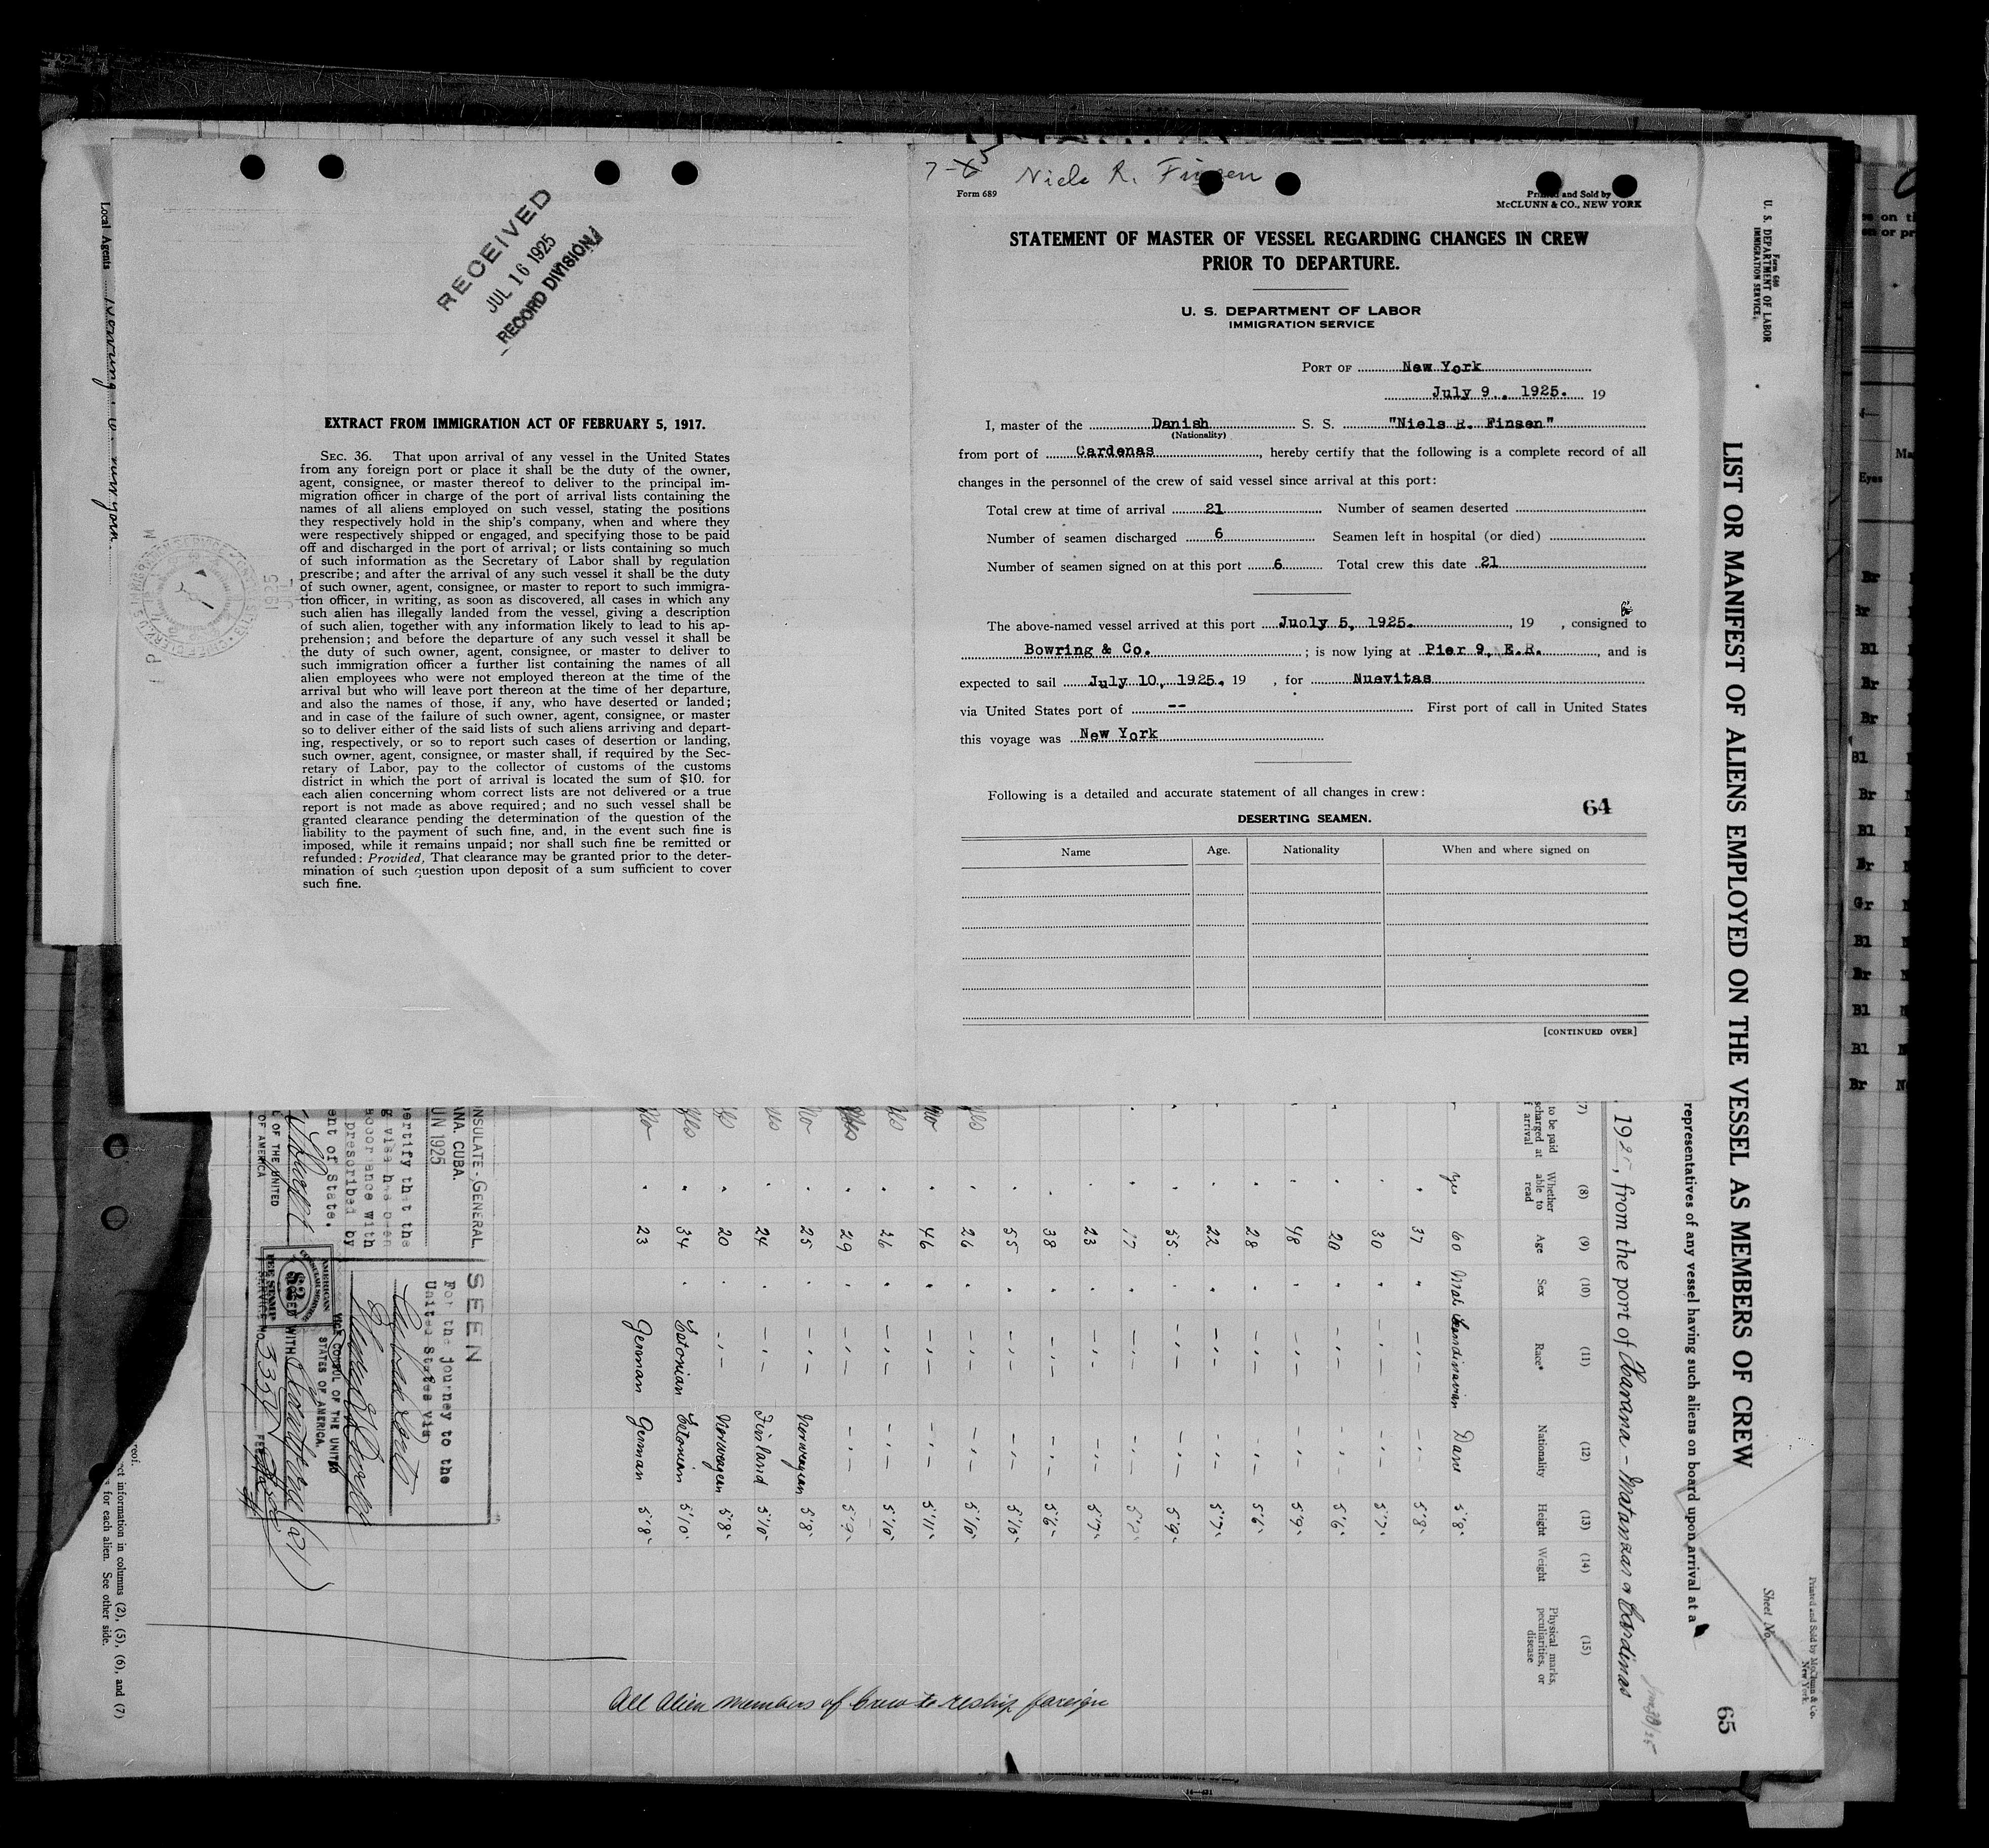 RECEIVED
JUL 16 1925
RECORD DIVISION
Local Agents
EXTRACT FROM IMMIGRATION ACT OF FEBRUARY 5, 1917.
SEC. 36. That upon arrival of any vessel in the United States
from any foreign port or place it shall be the duty of the owner,
agent, consignee, or master thereof to deliver to the principal im-
migration officer in charge of the port of arrival lists containing the
names of all aliens employed on such vessel, stating the positions
they respectively hold in the ship's company, when and where they
were respectively shipped or engaged, and specifying those to be paid
off and discharged in the port of arrival; or lists containing so much
of such information as the Secretary of Labor shall by regulation
prescribe; and after the arrival of any such vessel it shall be the duty
of such owner, agent, consignee, or master to report to such immigra-
tion officer, in writing, as soon as discovered, all cases in which any
such alien has illegally landed from the vessel, giving a description
of such alien, together with any information likely to lead to his ap-
prehension; and before the departure of any such vessel it shall be
the duty of such owner, agent, consignee, or master to deliver to
such immigration officer a further list containing the names of all
alien employees who were not employed thereon at the time of the
arrival but who will leave port thereon at the time of her departure,
and also the names of those, if any, who have deserted or landed;
and in case of the failure of such owner, agent, consignee, or master
so to deliver either of the said lists of such aliens arriving and depart-
ing, respectively, or so to report such cases of desertion or landing,
such owner, agent, consignee, or master shall, if required by the Sec-
retary of Labor, pay to the collector of customs of the customs
district in which the port of arrival is located the sum of $10. for
each alien concerning whom correct lists are not delivered or a true
report is not made as above required; and no such vessel shall be
granted clearance pending the determination of the question of the
liability to the payment of such fine, and, in the event such fine is
imposed, while it remains unpaid; nor shall such fine be remitted or
refunded: Provided, That clearance may be granted prior to the deter-
mination of such question upon deposit of a sum sufficient to cover
such fine.
Niels R. Finsen
Form 689
Printed and Sold by
McCLUNN & CO., NEW YORK
STATEMENT OF MASTER OF VESSEL REGARDING CHANGES IN CREW
PRIOR TO DEPARTURE.
U. S. DEPARTMENT OF LABOR
IMMIGRATION SERVICE
PORT OF New York
July 9., 1925. 19
I, master of the Danish S. S. "Niels R. Finsen"
(Nationality)
from port of Cardenas, hereby certify that the following is a complete record of all
changes in the personnel of the crew of said vessel since arrival at this port:
Total crew at time of arrival 21 Number of seamen deserted
Number of seamen discharged 6 Seamen left in hospital (or died)
Number of seamen signed on at this port 6 Total crew this date 21
The above-named vessel arrived at this port Juoly 5, 1925., 19 , consigned to
Bowring & Co. ; is now lying at Pier 9, E.R. , and is
expected to sail July 10, 1925, 19 , for Nuevitas
via United States port of -- First port of call in United States
this voyage was New York
Following is a detailed and accurate statement of all changes in crew:
64
DESERTING SEAMEN.
Name Age. Nationality When and where signed on
[CONTINUED OVER]
Form 680
U. S. DEPARTMENT OF LABOR
IMMIGRATION SERVICE
LIST OR MANIFEST OF ALIENS EMPLOYED ON THE VESSEL AS MEMBERS OF CREW
Sheet No.
Printed and Sold by McClunn & Co.
New York.
65
representatives of any vessel having such aliens on board upon arrival at a
, 192 , from the port of Havana - Matanzas & Cardenas
(7) (8) (9) (10) (11) (12) (13) (14) (15)
to be paid
Whether able to read
Age
Sex
Race*
Nationality
Height
Weight
Physical marks, peculiarities, or disease
yes 60 Male Scandinavian Dane 5'8"
37 5'8"
30 5'7"
20 5'6"
48 5'9"
28 5'6"
22 5'7"
55 5'9"
17
23 5'7"
38 5'6"
55 5'10"
yes 26 5'10"
no 46 5'11"
yes 26 5'10"
yes 29 5'9"
no 25 Norwegian 5'8"
yes 24 Finland 5'10"
yes 20 Norwegian 5'8"
yes 34 Estonian Estonian 5'10"
no 23 German German 5'8"
All alien members of crew to reship foreign
NSULATE-GENERAL,
ANA, CUBA.
UN 1925
ertify that the
g visa has been
accordance with
prescribed by
ent of State.
OF THE UNITED
OF AMERICA
SEEN
For the journey to the
United States via
VICE CONSUL OF THE UNITED
STATES OF AMERICA.
AMERICAN
CONSULAR SERVICE
$2
FEE STAMP
SERVICE NO.
ct information in columns (2), (5), (6), and (7)
for each alien. See other side.